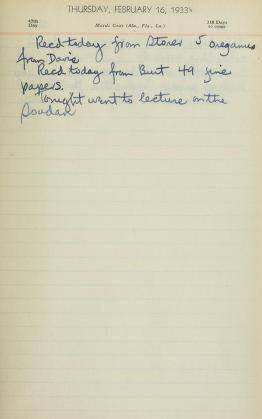 THURSDAY, FEBRUARY 16, 1933
47th Day Mardi Gras (Ala., Fla., La.) 318 Days to come
Recd today from Storer 5
from Davis
Recd today from Burt 49 fine
papers.
Tonight went to lecture on the